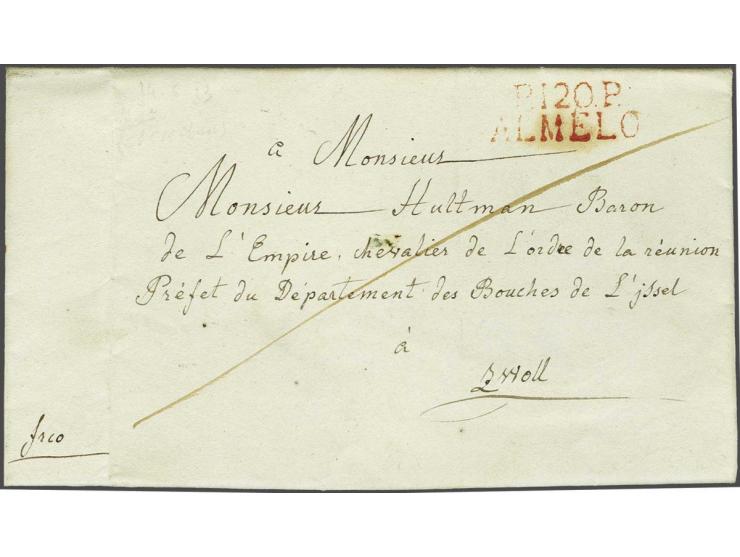 P.120.P.
ALMELO
a Monsieur
Monsieur Hultman Baron
de L'Empire, chevalier de L'ordre de la réunion
Préfet du Département des Bouches de L'yssel
à
Zwoll
frco